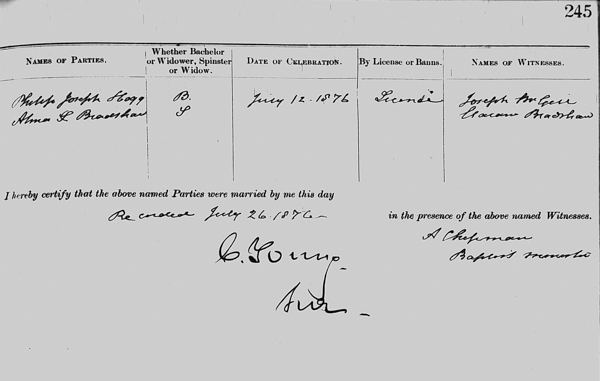 245
NAMES OF PARTIES. Whether Bachelor or Widower, Spinster or Widow. DATE OF CELEBRATION. By License or Banns. NAMES OF WITNESSES.
Philip Joseph Hogg B. July 12. 1876 License Joseph
Alma L Bradshaw S Bradshaw
I hereby certify that the above named Parties were married by me this day
Recorded July 26. 1876 in the presence of the above named Witnesses.
A Chipman
C. Young Baptist